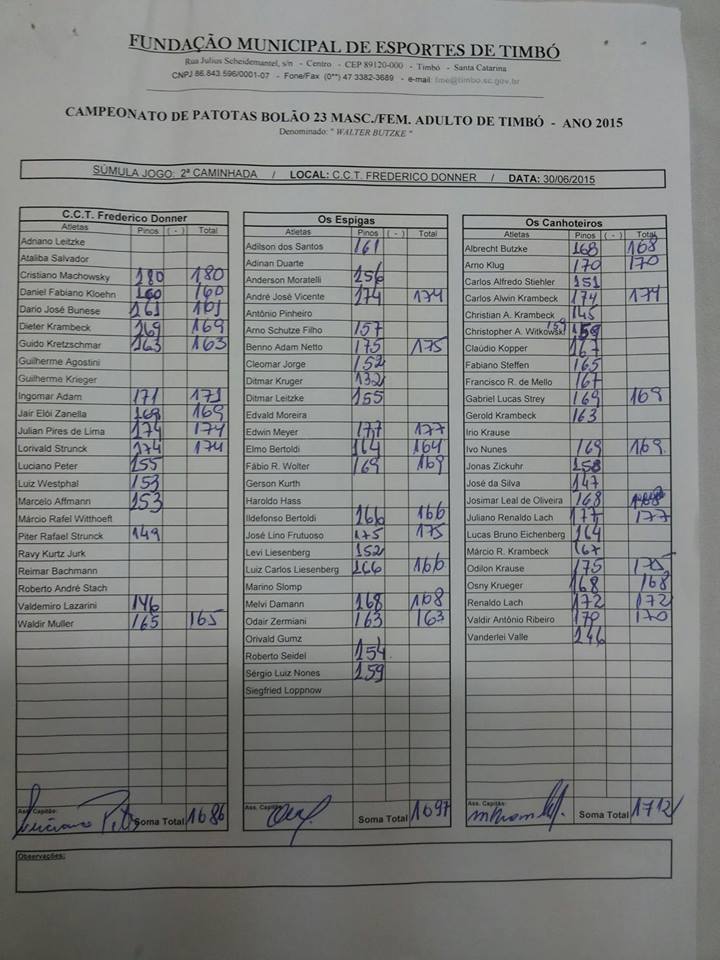 FUNDAÇÃO MUNICIPAL DE ESPORTES DE TIMBÓ
Rua Julius Scheidemantel, s/n - Centro - CEP 89120-000 - Timbó - Santa Catarina
CNPJ 86.843.596/0001-07 - Fone/Fax (0**) 47 3382-3689 - e-mail: fme@timbo.sc.gov.br
CAMPEONATO DE PATOTAS BOLÃO 23 MASC./FEM. ADULTO DE TIMBÓ - ANO 2015
Denominado: " WALTER BUTZKE "
SÚMULA JOGO: 2ª CAMINHADA / LOCAL: C.C.T. FREDERICO DONNER / DATA: 30/06/2015
C.C.T. Frederico Donner
Atletas Pinos ( - ) Total
Adriano Leitzke
Ataliba Salvador
Cristiano Machowsky 180 180
Daniel Fabiano Kloehn 160 160
Dario José Bunese 161 161
Dieter Krambeck 169 169
Guido Kretzschmar 163 163
Guilherme Agostini
Guilherme Krieger
Ingomar Adam 171 171
Jair Elói Zanella 169 169
Julian Pires de Lima 174 174
Lorivald Strunck 174 174
Luciano Peter 155
Luiz Westphal 153
Marcelo Affmann 153
Márcio Rafel Witthoeft
Piter Rafael Strunck 149
Ravy Kurtz Jurk
Reimar Bachmann
Roberto André Stach
Valdemiro Lazarini 146
Waldir Muller 165 165
Ass. Capitão:
Soma Total 1686
Os Espigas
Atletas Pinos ( - ) Total
Adilson dos Santos 161
Adinan Duarte
Anderson Moratelli 156
André José Vicente 174 174
Antônio Pinheiro
Arno Schutze Filho 157
Benno Adam Netto 175 175
Cleomar Jorge 152
Ditmar Kruger 132
Ditmar Leitzke 155
Edvald Moreira
Edwin Meyer 177 177
Elmo Bertoldi 164 164
Fábio R. Wolter 169 169
Gerson Kurth
Haroldo Hass
Ildefonso Bertoldi 166 166
José Lino Frutuoso 175 175
Levi Liesenberg 152
Luiz Carlos Liesenberg 166 166
Marino Slomp
Melvi Damann 168 168
Odair Zermiani 163 163
Orivald Gumz
Roberto Seidel 154
Sérgio Luiz Nones 159
Siegfried Loppnow
Ass. Capitão:
Soma Total 1697
Os Canhoteiros
Atletas Pinos ( - ) Total
Albrecht Butzke 168 168
Arno Klug 170 170
Carlos Alfredo Stiehler 151
Carlos Alwin Krambeck 174 174
Christian A. Krambeck 145
Christopher A. Witkowski 159
Claúdio Kopper 167
Fabiano Steffen 165
Francisco R. de Mello 167
Gabriel Lucas Strey 169 169
Gerold Krambeck 163
Irio Krause
Ivo Nunes 169 169
Jonas Zickuhr 158
José da Silva 147
Josimar Leal de Oliveira 168
Juliano Renaldo Lach 177 177
Lucas Bruno Eichenberg 164
Márcio R. Krambeck 167
Odilon Krause 175 175
Osny Krueger 168 168
Renaldo Lach 172 172
Valdir Antônio Ribeiro 170 170
Vanderlei Valle 146
Ass. Capitão:
Soma Total 1712
Observações: